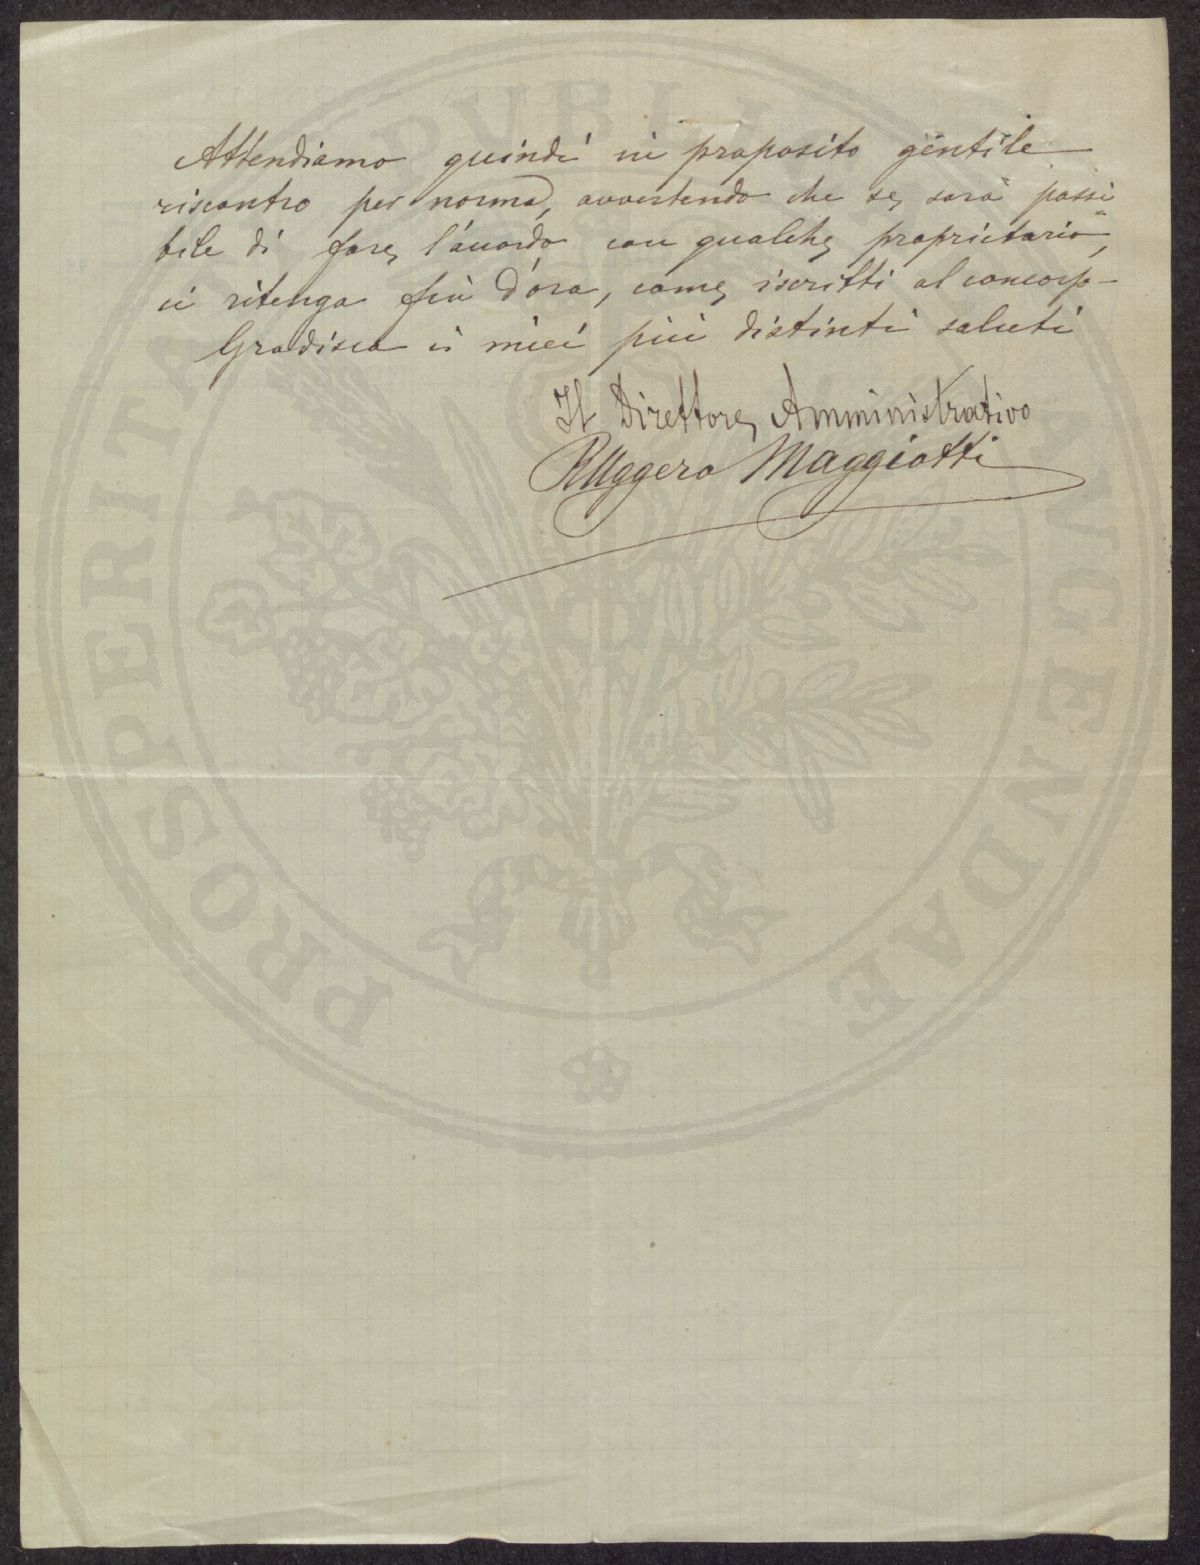 Attendiamo quindi in proposito gentile
riscontro per norma, avvertendo che se, sarà possi
bile di fare, l'accordo con qualche, proprietario,
ci ritenga fin d'ora, come, iscritti al concorso-
Gradisca i miei più distinti saluti
Il Direttore, Amministrativo
Ruggero Maggiotti
PROSPERITATI PVBLICAE AVGENDAE